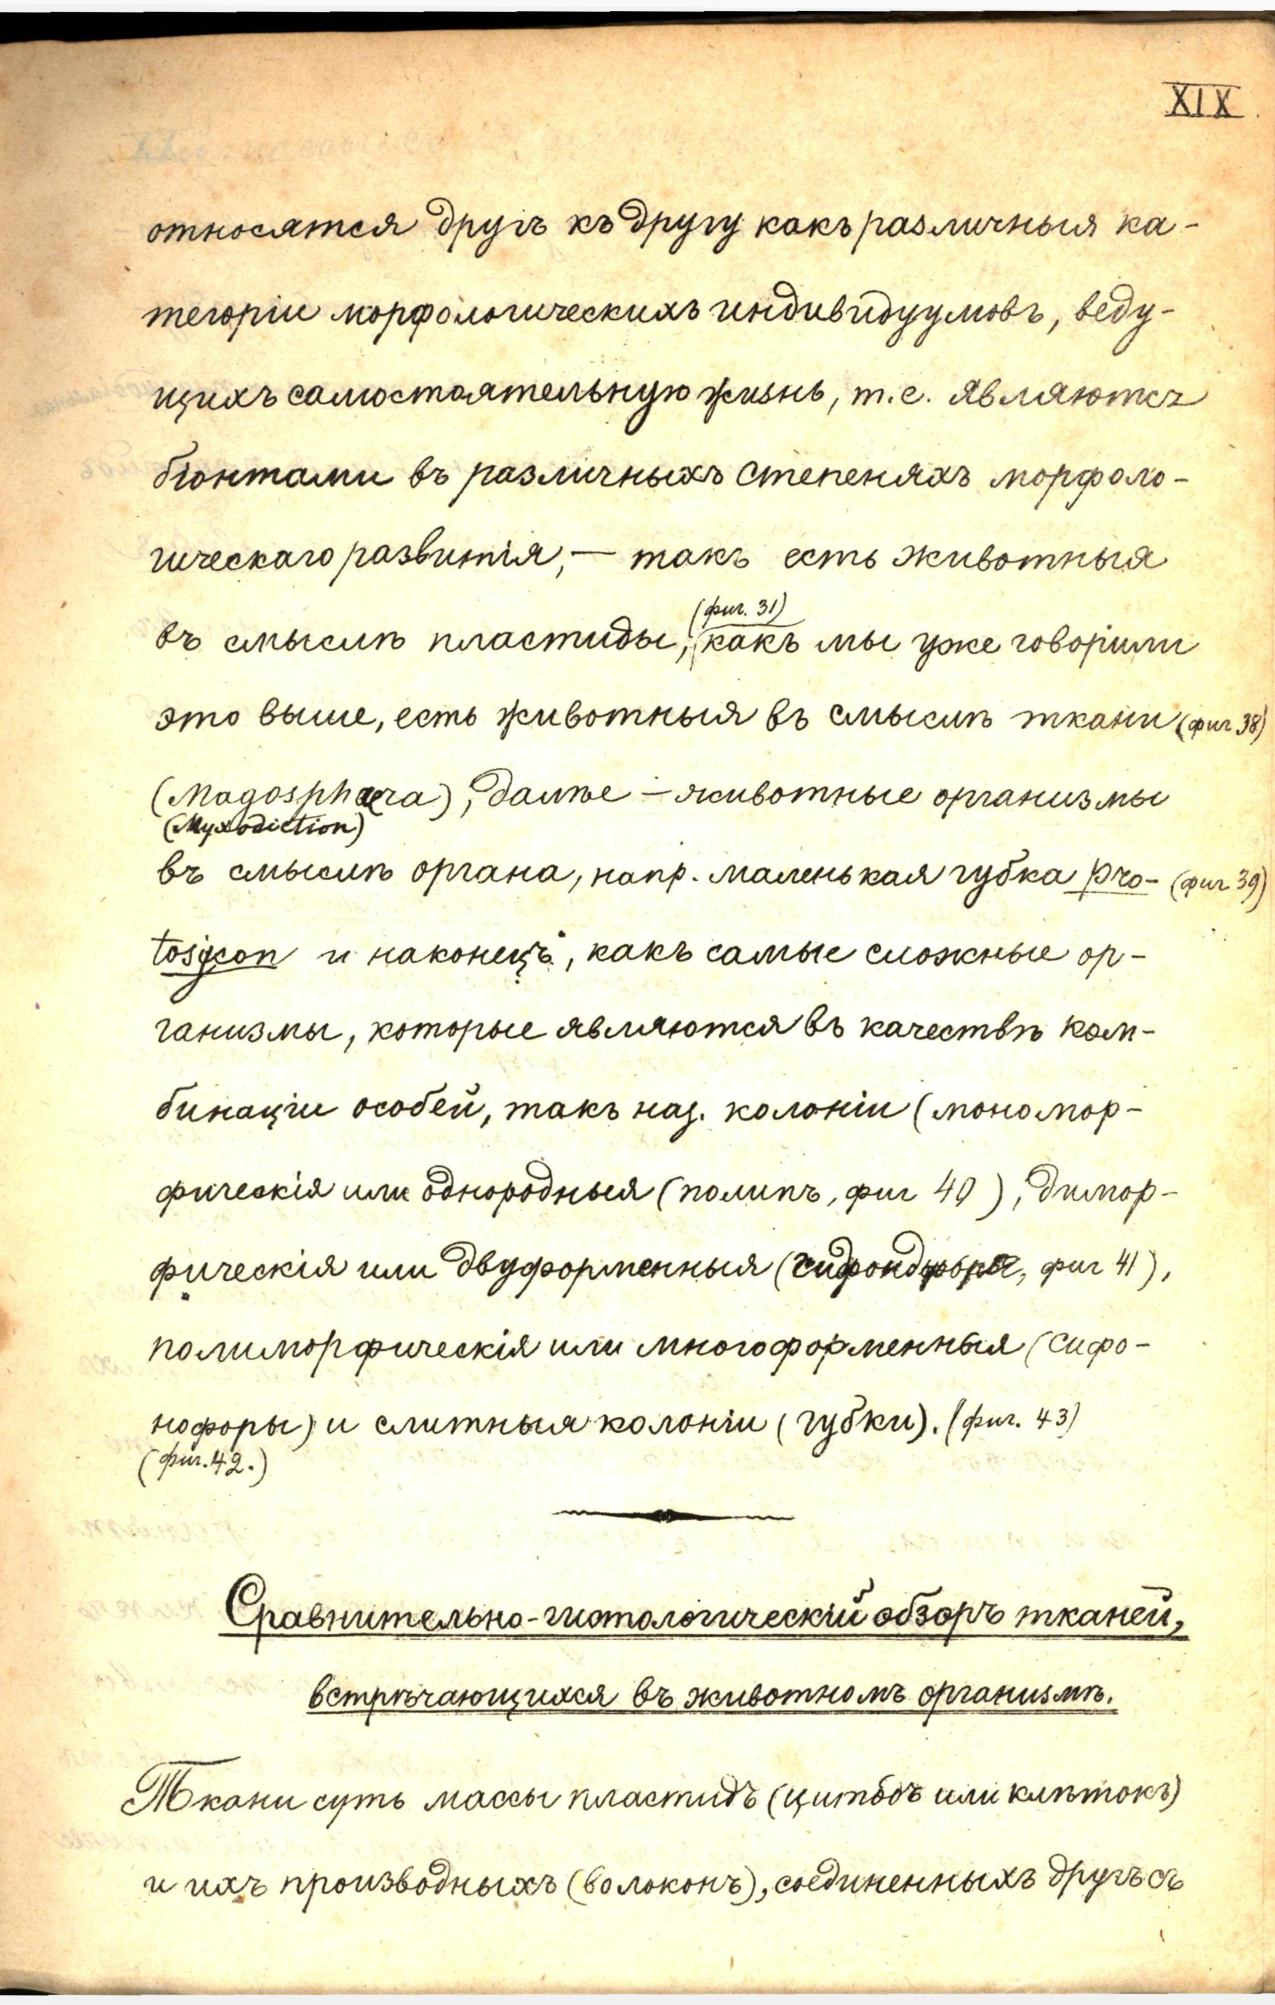 XIX
относятся другъ къ другу какъ различныя ка-
тегоріи морфологическихъ индивидуумовъ, веду-
щихъ самостоятельную жизнь, т.е. являются
біонтами въ различныхъ степеняхъ морфоло-
гическаго развитія, — такъ есть животныя
(фиг. 31)
въ смыслѣ пластиды, какъ мы уже говорили
это выше, есть животныя въ смыслѣ ткани (фиг 38)
(Magosphaera), далѣе — животные организмы
(Myxodiction)
въ смыслѣ органа, напр. маленькая губка pro- (фиг. 39)
tosycon и наконецъ, какъ самые сложные ор-
ганизмы, которые являются въ качествѣ ком-
бинаціи особей, такъ наз. колоніи (мономор-
фическія или однородныя (полипъ, фиг 40), димор-
фическія или двуформенныя (фиг 41),
полиморфическія или многоформенныя (сифо-
нофоры) и слитныя колоніи (губки). (фиг. 43)
(фиг. 42.)
Сравнительно-гистологическій обзоръ тканей,
встрѣчающихся въ животномъ организмѣ.
Ткани суть массы пластидъ (цитодъ или клѣтокъ)
и ихъ производныхъ (волоконъ), соединенныхъ другъ съ